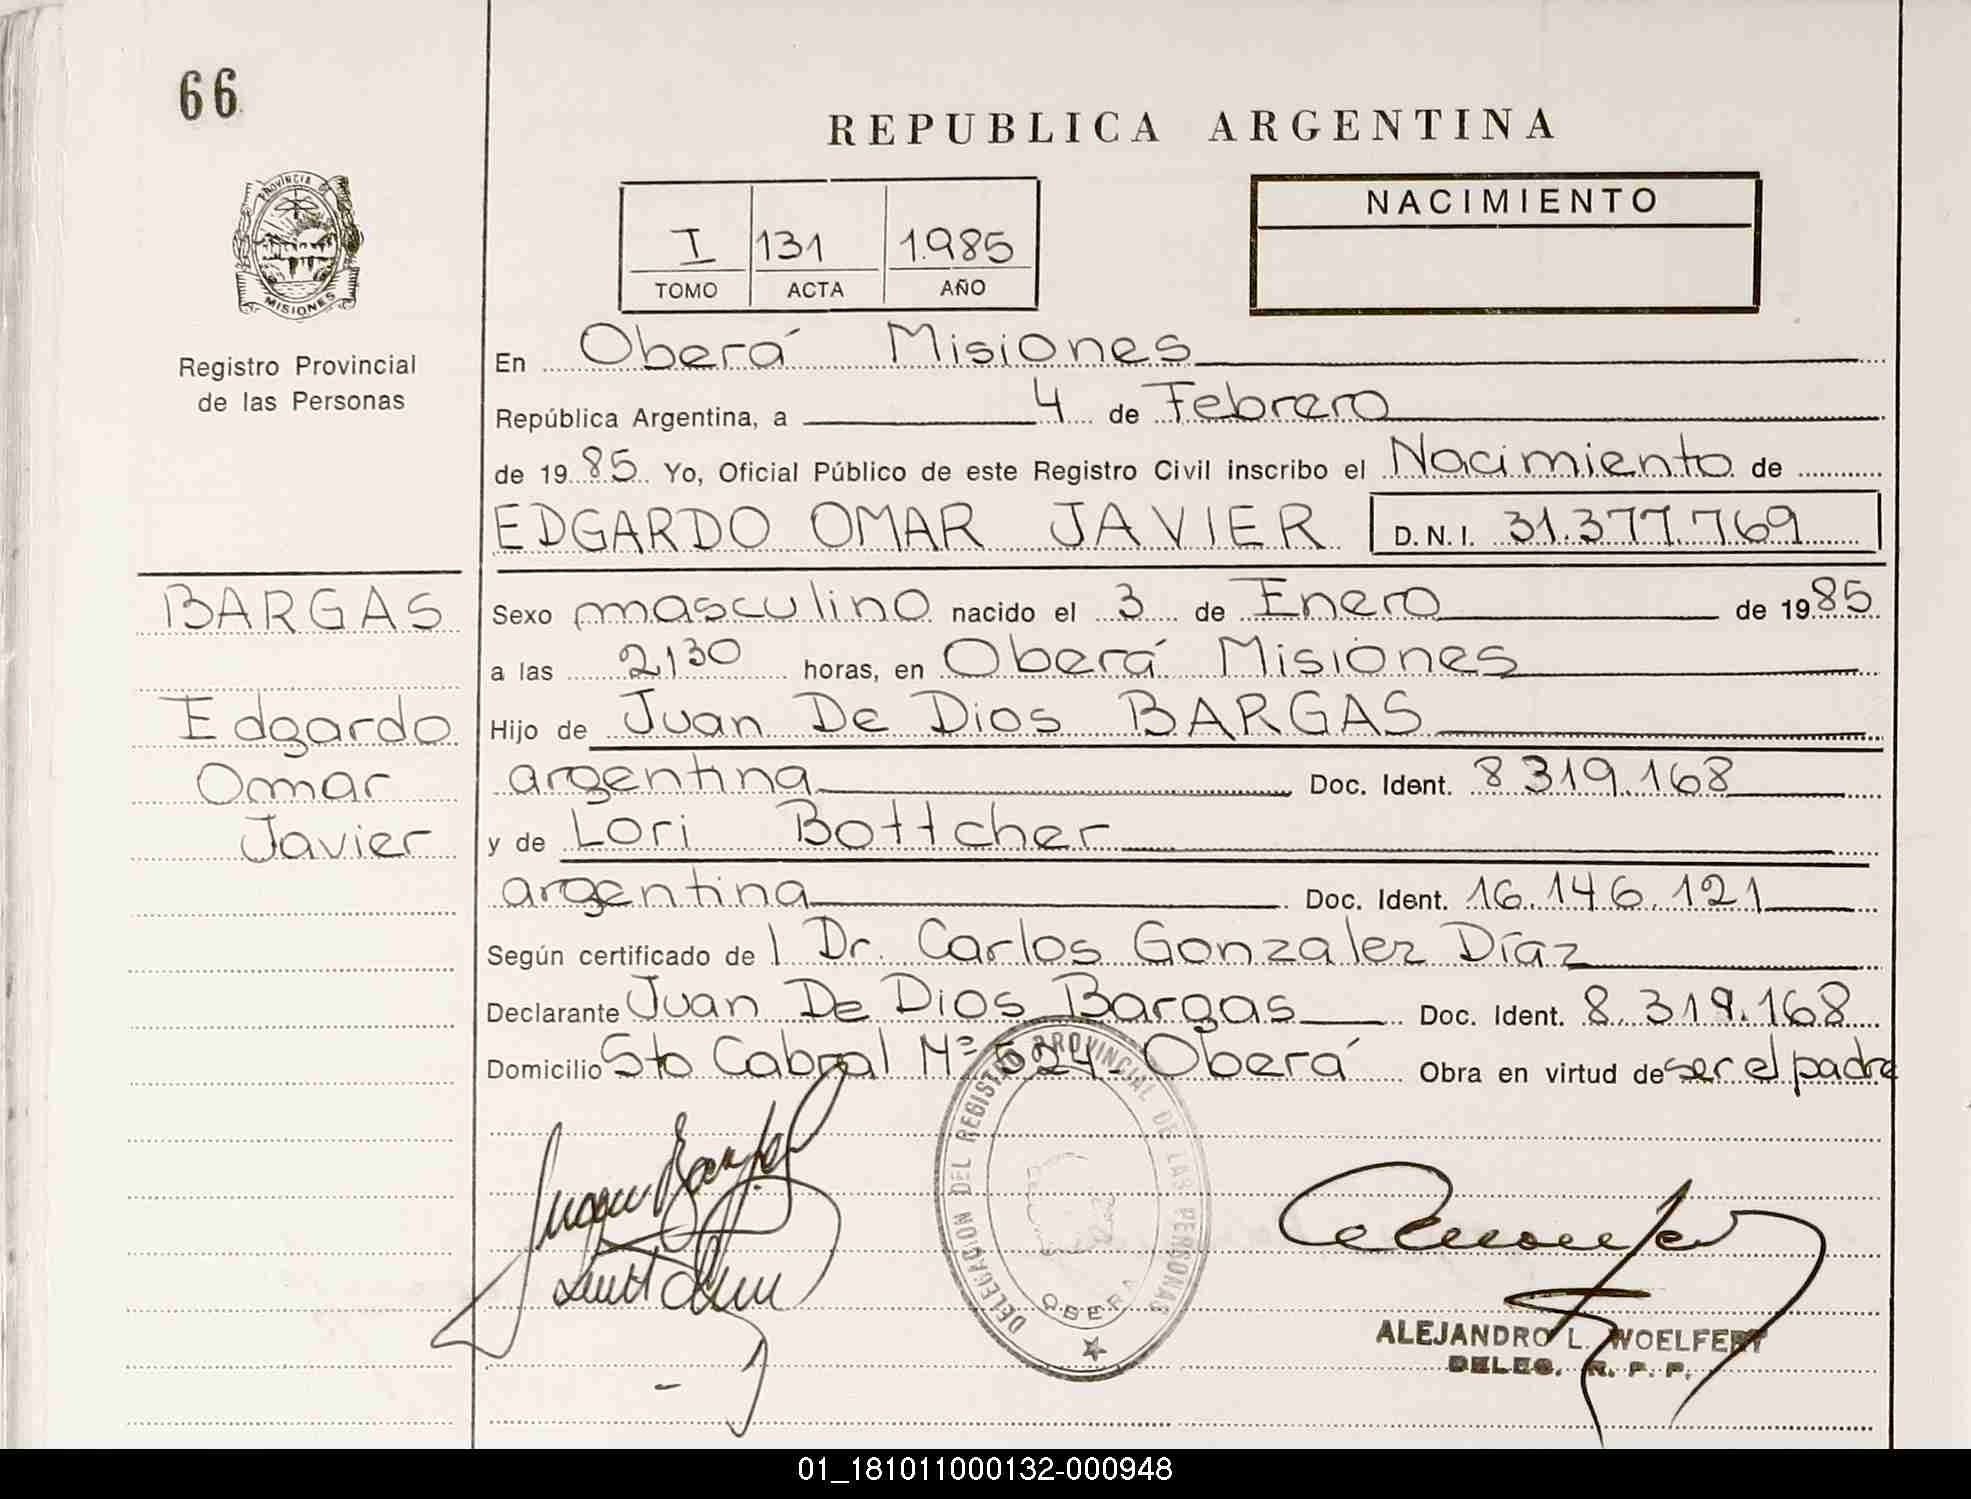 66
REPUBLICA ARGENTINA
PROVINCIA DE
MISIONES
NACIMIENTO
I 131 1.985
TOMO ACTA AÑO
Registro Provincial
de las Personas
En Oberá Misiones
República Argentina, a 4 de Febrero
de 19 85 Yo, Oficial Público de este Registro Civil inscribo el Nacimiento de
EDGARDO OMAR JAVIER D.N.I. 31.377.769
BARGAS
Edgardo
Omar
Javier
Sexo masculino nacido el 3 de Enero de 19 85
a las 2,30 horas, en Oberá Misiones
Hijo de Juan De Dios BARGAS
argentina Doc. Ident. 8 319.168
y de Lori Bottcher
argentina Doc. Ident. 16.146.121
Según certificado de l Dr. Carlos Gonzalez Díaz
Declarante Juan De Dios Bargas Doc. Ident. 8.319.168
Domicilio Sto Cabral Nº 524 - Oberá Obra en virtud de ser el padre
DELEGACION DEL REGISTRO PROVINCIAL DE LAS PERSONAS
OBERA
ALEJANDRO L. WOELFERT
DELEG. R. P. P.
01_181011000132-000948